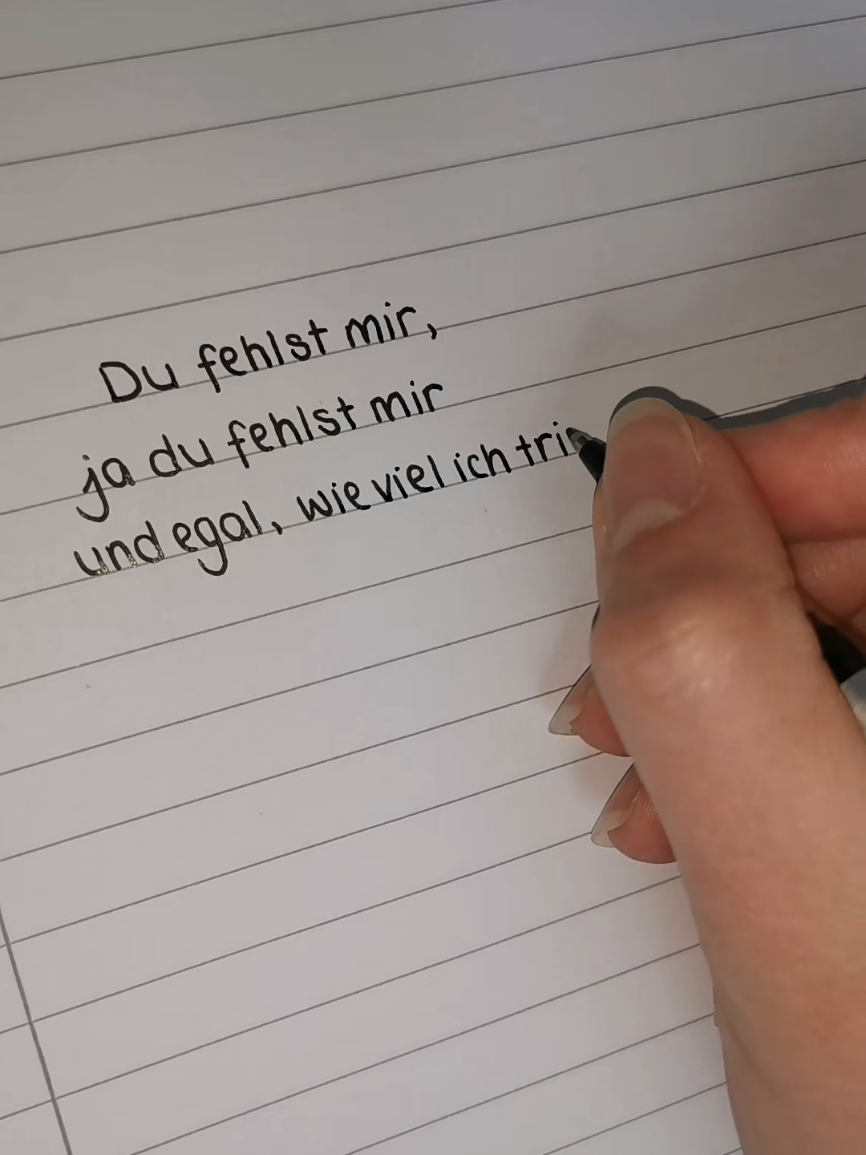 Du fehlst mir,
ja du fehlst mir
und egal, wie viel ich tri